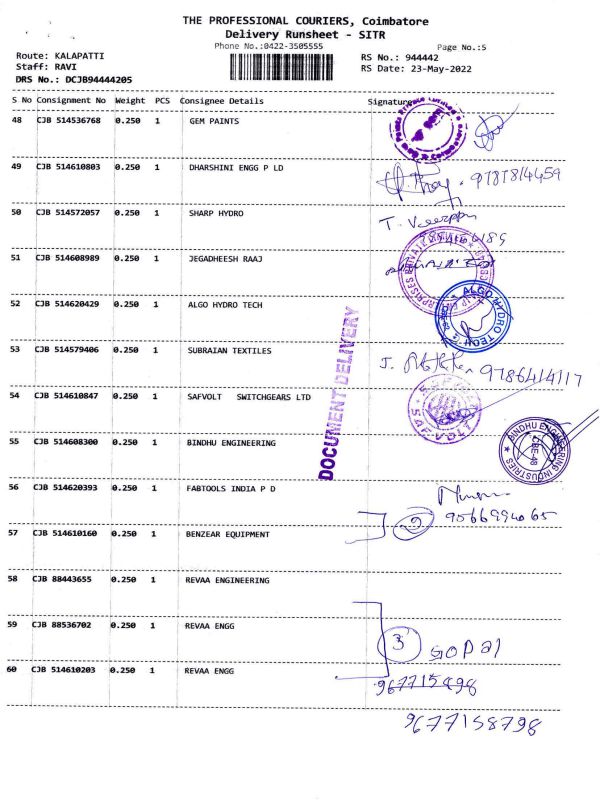 THE PROFESSIONAL COURIERS, Coimbatore
Delivery Runsheet - SITR
Phone No.:0422-3505555
Page No.:5
Route: KALAPATTI
Staff: RAVI
DRS No.: DCJB94444205
RS No.: 944442
RS Date: 23-May-2022
S No Consignment No Weight PCS Consignee Details Signature
48 CJB 514536768 0.250 1 GEM PAINTS
49 CJB 514610803 0.250 1 DHARSHINI ENGG P LD
9787814459
50 CJB 514572057 0.250 1 SHARP HYDRO
T.
51 CJB 514608989 0.250 1 JEGADHEESH RAAJ
52 CJB 514620429 0.250 1 ALGO HYDRO TECH
ALGO HYDRO TECH
53 CJB 514579406 0.250 1 SUBRAIAN TEXTILES
J. 9786414117
DOCUMENT DELIVERY
54 CJB 514610847 0.250 1 SAFVOLT SWITCHGEARS LTD
55 CJB 514608300 0.250 1 BINDHU ENGINEERING
BINDHU ENGINEERING INDUSTRIES
CBE-48
56 CJB 514620393 0.250 1 FABTOOLS INDIA P D
2 9566994065
57 CJB 514610160 0.250 1 BENZEAR EQUIPMENT
58 CJB 88443655 0.250 1 REVAA ENGINEERING
59 CJB 88536702 0.250 1 REVAA ENGG
3 GOPAl
60 CJB 514610203 0.250 1 REVAA ENGG
9677158798